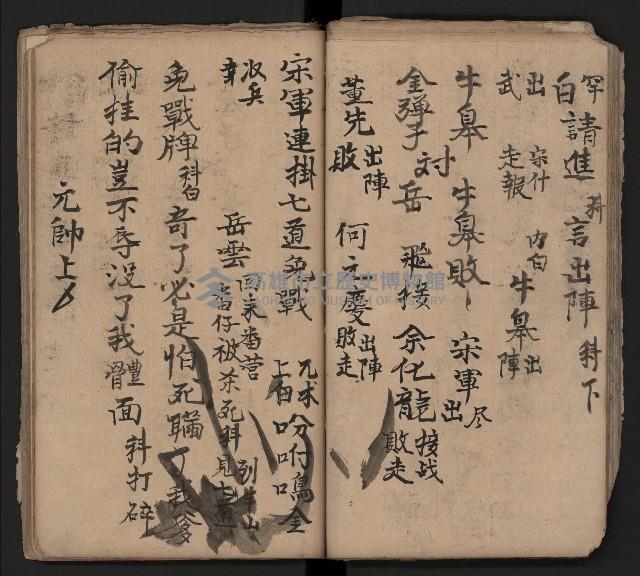 罕白請進 科 言出陣 科下
出武 宗什走報 內白 牛皋出陣
牛皋 牛皋敗 宋軍尽出
金彈子対岳飛接 余化龍接战敗走
董先出陣敗 何元慶出陣敗走
宋軍連掛七道免戰 兀术上白 吩咐鳴金
收兵 岳雲 來番营 番仔被杀死科 見七道
免戰牌 科白 奇了必是怕死瞞了我爹
偷挂的豈不辱没了我體面 科打碎
元帥上
高雄市立歷史博物館
KAOHSIUNG MUSEUM OF HISTORY